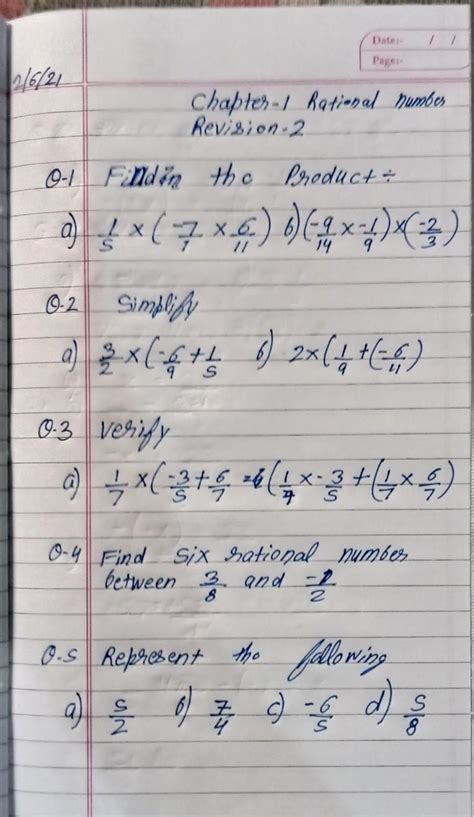 Date:- / /
Page:-
2/6/21
Chapter-1 Rational number
Revision-2
Q-1 Findin the Product ÷
a) 1/5 × (-7/1 × 6/11) b) (-9/14 × -1/9) × (-2/3)
Q-2 Simplify
a) 3/2 × (-6/9 + 1/5 b) 2 × (1/9 + (-6/11)
Q.3 Verify
a) 1/7 × (-3/5 + 6/7 = (1/7 × -3/5 + (1/7 × 6/7)
Q-4 Find six rational number
between 3/8 and -1/2
Q.5 Represent the following
a) 5/2 b) 7/4 c) -6/5 d) 5/8